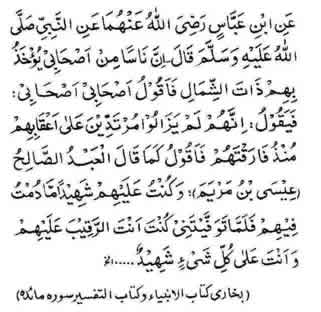 عَنِ ابْنِ عَبَّاسٍ رَضِىَ اللّٰهُ عَنْهُمَا عَنِ النَّبِيِّ صَلَّى
اللّٰهُ عَلَيْهِ وَسَلَّمَ قَالَ اِنَّ نَاسًا مِنْ اَصْحَابِىْ يُؤْخَذُ
بِهِمْ ذَاتَ الشِّمَالِ فَاَقُوْلُ اَصْحَابِىْ اَصْحَابِىْ :
فَيَقُوْلُ : اِنَّهُمْ لَمْ يَزَالُوْا مُرْتَدِّيْنَ عَلٰى اَعْقَابِهِمْ
مُنْذُ فَارَقْتَهُمْ فَاَقُوْلُ كَمَا قَالَ الْعَبْدُ الصَّالِحُ
(عِيْسَى بْنُ مَرْيَمَ) : وَكُنْتُ عَلَيْهِمْ شَهِيْدًا مَّا دُمْتُ
فِيْهِمْ فَلَمَّا تَوَفَّيْتَنِىْ كُنْتَ اَنْتَ الرَّقِيْبَ عَلَيْهِمْ
وَاَنْتَ عَلٰى كُلِّ شَىْءٍ شَهِيْدٌ ..... الخ
(بخاری کتاب الانبیاء وکتاب التفسیر سورہ مائدہ)